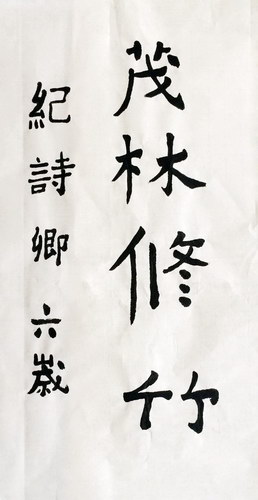 茂林修竹
紀詩卿六歲